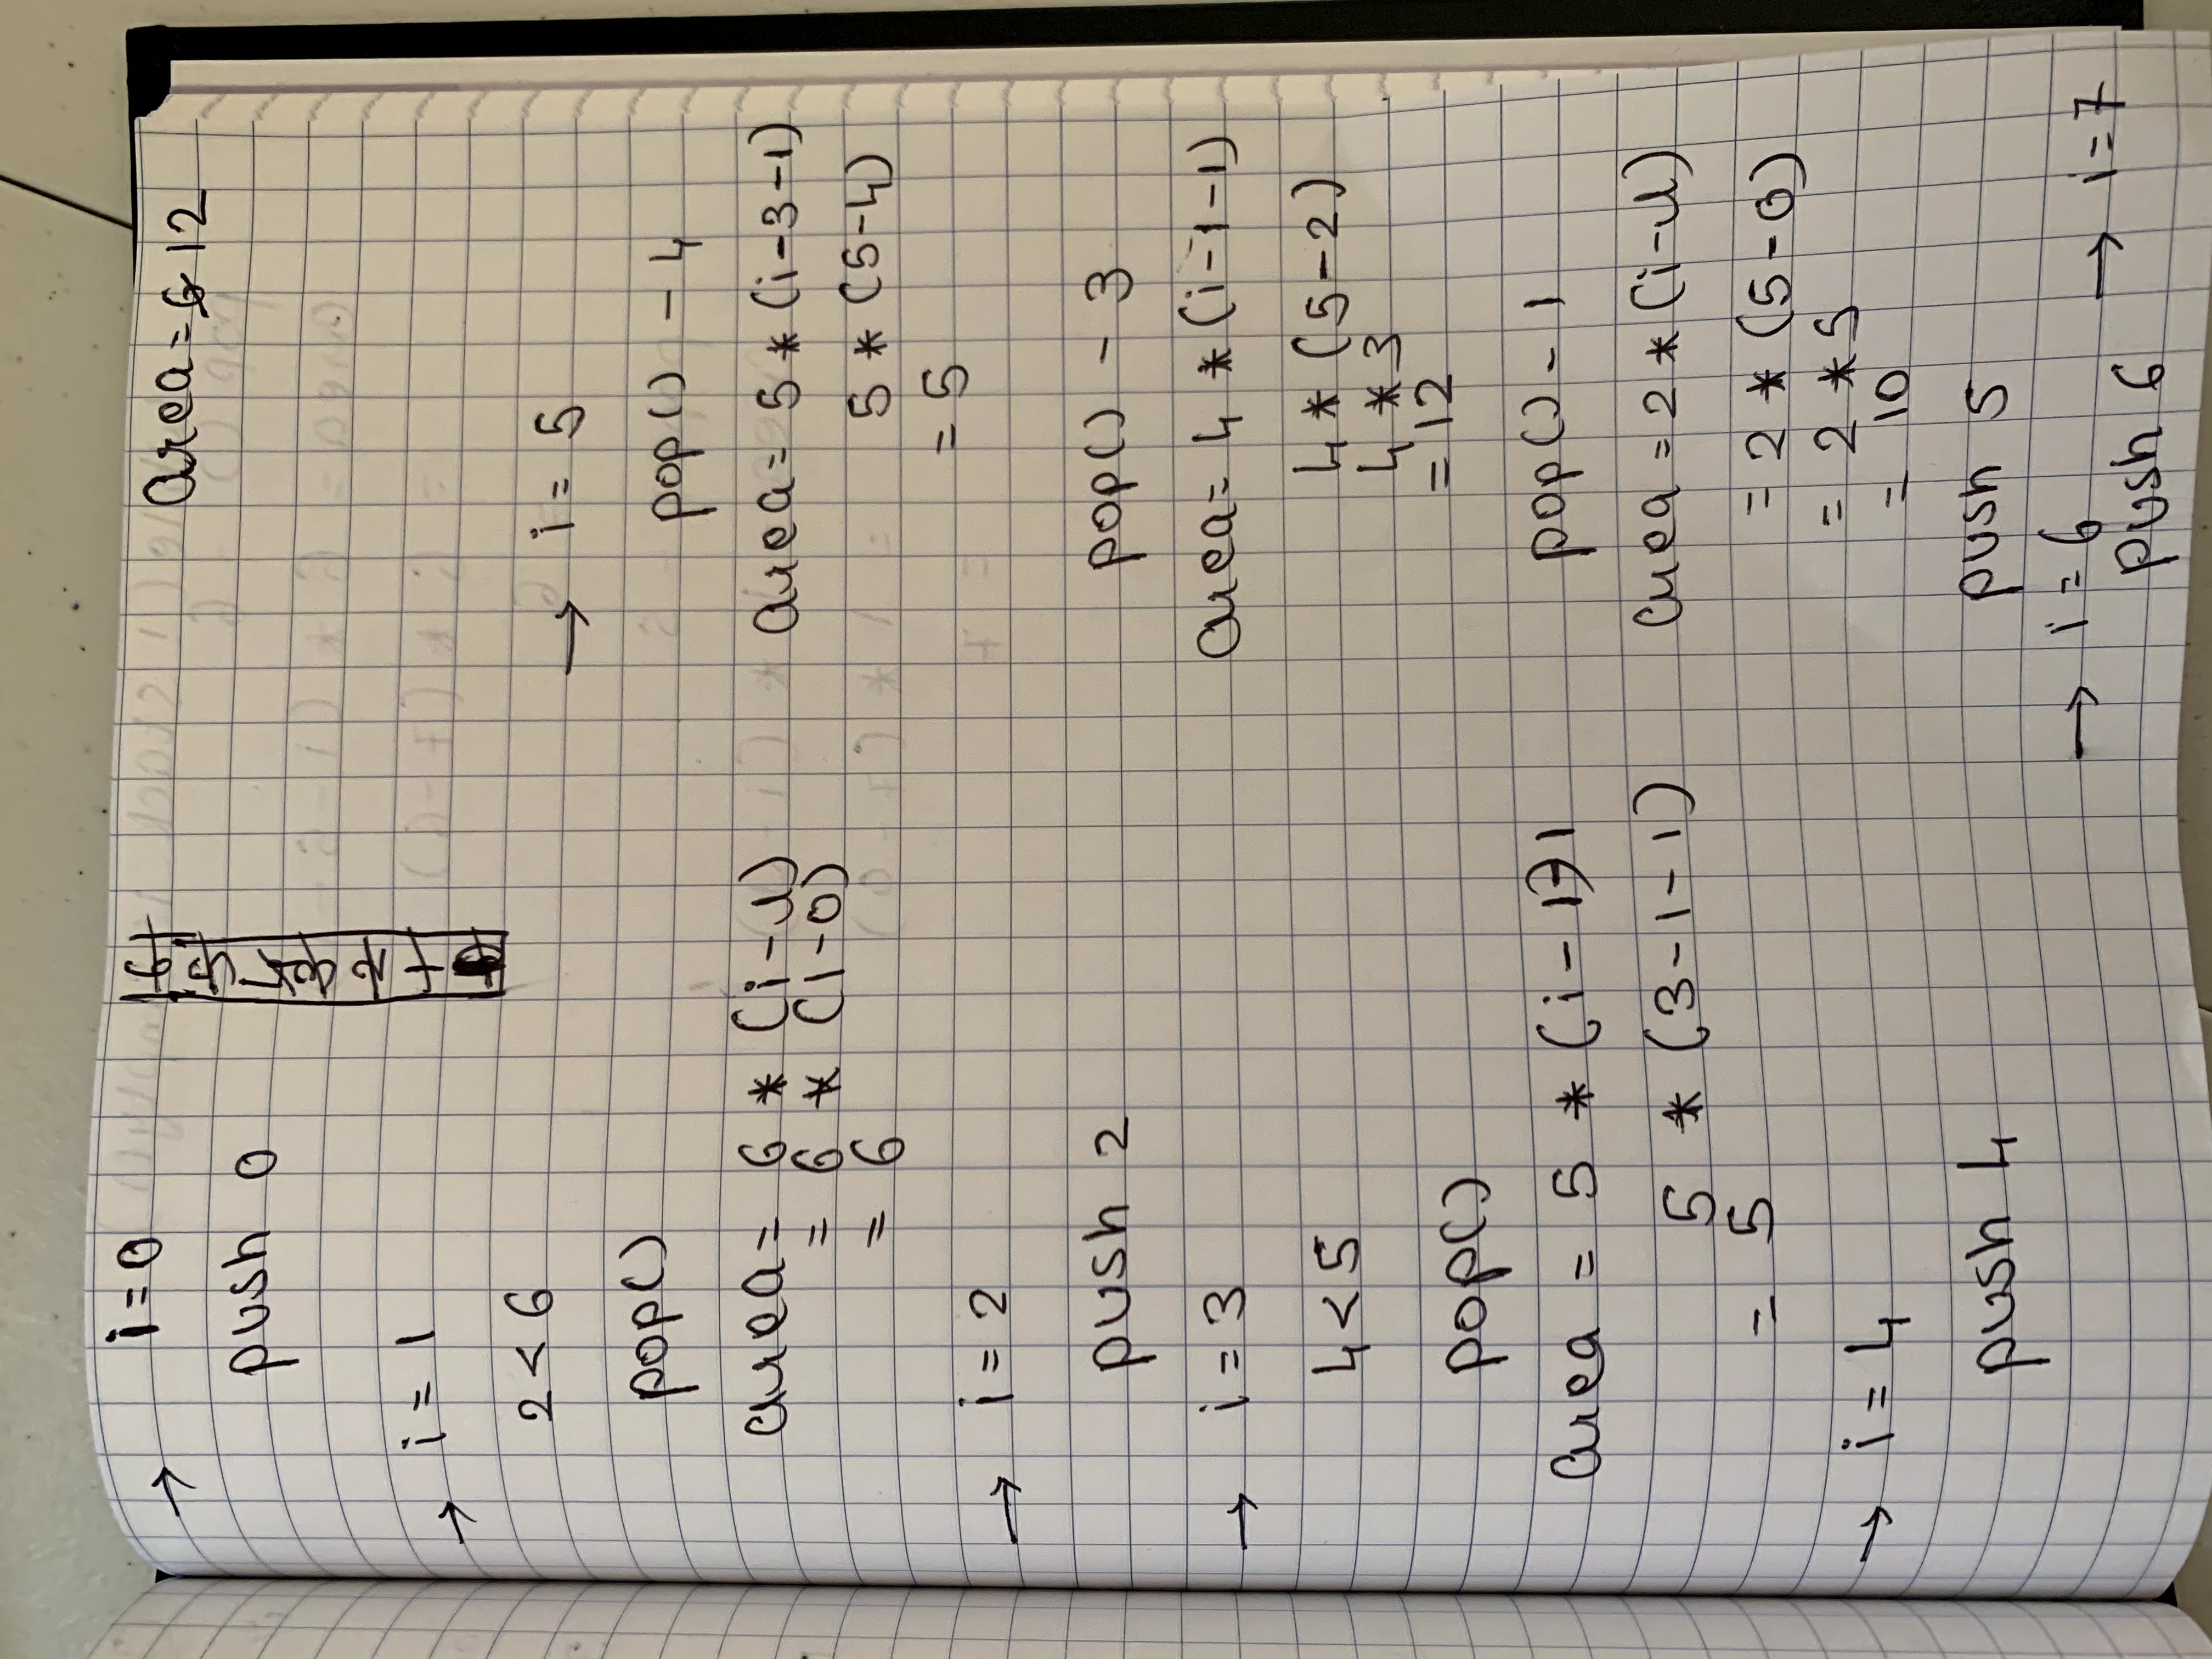 → i = 0
push 0
→ i = 1
2 < 6
pop()
area = 6 * (i-1)
= 6 * (1-0)
= 6
→ i = 2
push 2
→ i = 3
4 < 5
pop()
area = 5 * (i-1)-1
5 * (3-1-1)
= 5
→ i = 4
push 4
6
5
4
3
2
1
area = 6 12
→ i = 5
pop() - 4
area = 5 * (i-3-1)
5 * (5-4)
= 5
pop() - 3
area = 4 * (i-1-1)
4 * (5-2)
4 * 3
= 12
pop() - 1
area = 2 * (i-1)
= 2 * (5-0)
= 2 * 5
= 10
push 5
→ i = 6
push 6
→ i = 7